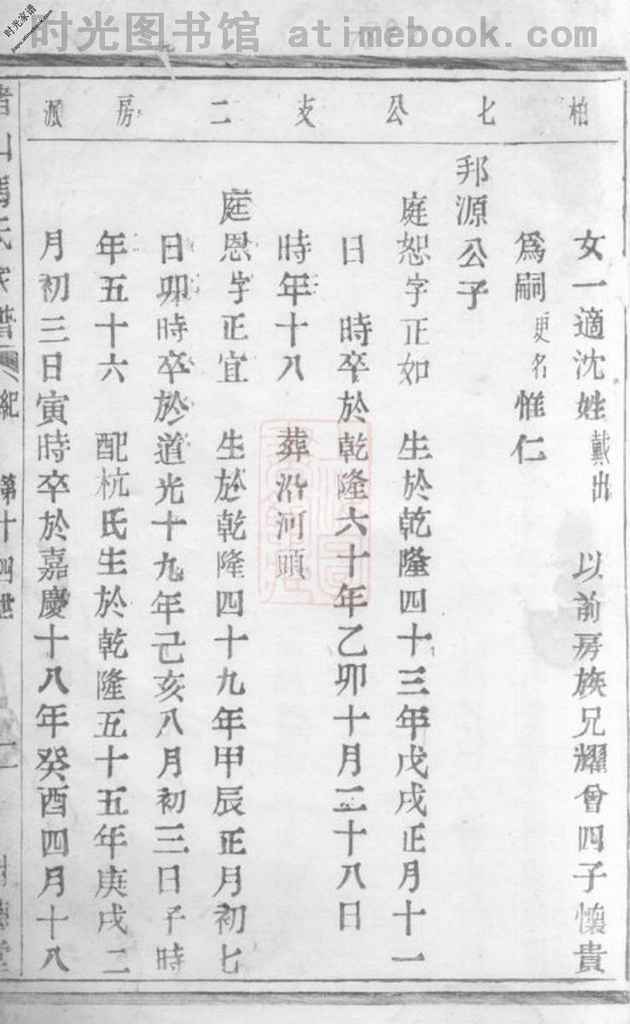 时光图书馆 atimebook.com
时光家谱
柏七公支二房派
女一適沈姓戴出 以前房族兄耀會四子懷貴
爲嗣更名惟仁
邦源公子
庭恕字正如 生於乾隆四十三年戊戌正月十一
日 時卒於乾隆六十年乙卯十月二十八日
時年十八 葬沿河頭
庭恩字正宜 生於乾隆四十九年甲辰正月初七
日卯時卒於道光十九年己亥八月初三日子時
年五十六 配杭氏生於乾隆五十五年庚戌二
月初三日寅時卒於嘉慶十八年癸酉四月十八
山馮氏家譜 紀 第十四世